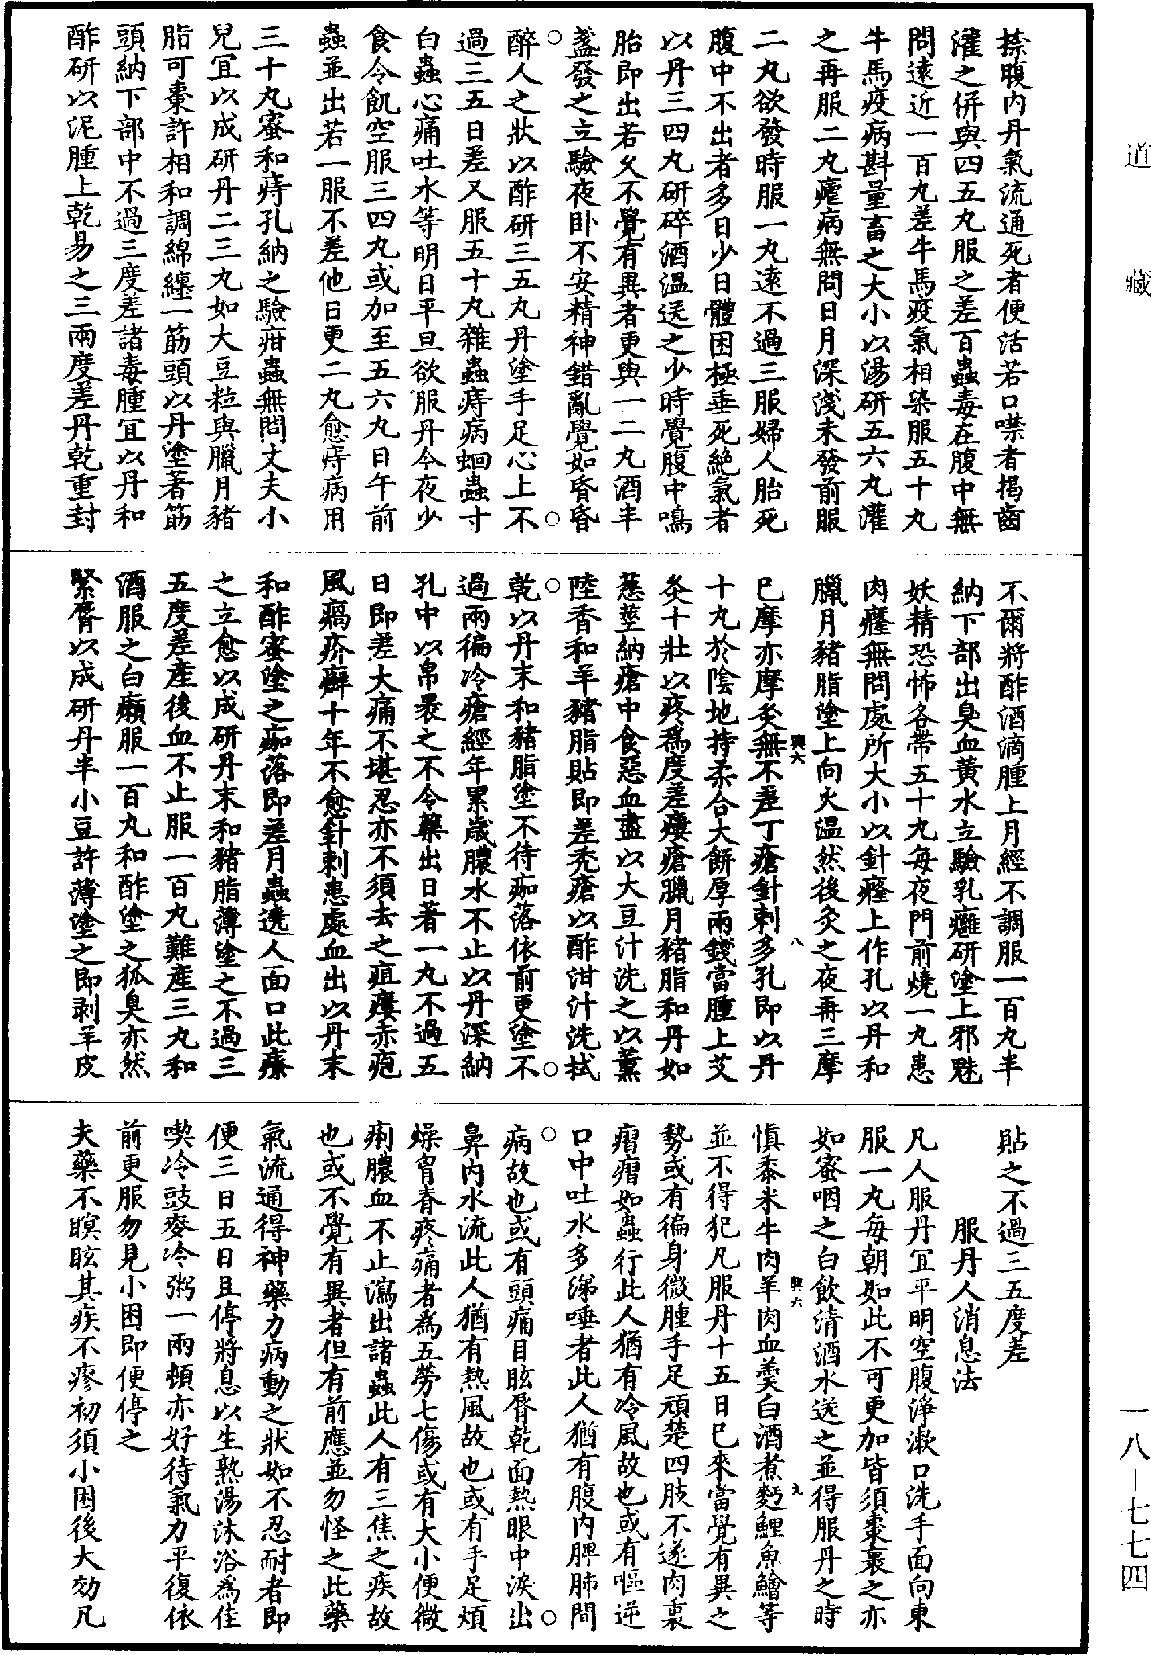 道藏
捺腹内丹氣流通死者便活若口噤者揭齒
灌之併與四五丸服之差百蟲毒在腹中無
問遠近一百丸差牛馬疫氣相染服五十丸
牛馬疫病斟量畜之大小以湯研五六丸灌
之再服二丸瘧病無問日月深淺未發前服
二丸欲發時服一丸遠不過三服婦人胎死
腹中不出者多日少日體困極垂死絶氣者
以丹三四丸研碎酒温送之少時覺腹中鳴
胎即出若久不覺有異者更與一二丸酒半
盞發之立驗夜卧不安精神錯亂覺如昏昏
醉人之狀以酢研三五丸丹塗手足心上不
過三五日差又服五十丸雜蟲痔病蛔蟲寸
白蟲心痛吐水等明日平旦欲服丹今夜少
食令飢空服三四丸或加至五六丸日午前
蟲並出若一服不差他日更二丸愈痔病用
三十丸蜜和痔孔納之驗疳蟲無問丈夫小
兒宜以成研丹二三丸如大豆粒與臘月豬
脂可棗許相和調綿纏一筋頭以丹塗著筋
頭納下部中不過三度差諸毒腫宜以丹和
酢研以泥腫上乾易之三兩度差丹乾重封
不爾將酢酒滴腫上月經不調服一百丸半
納下部出臭血黄水立驗乳癰研塗上邪魅
妖精恐怖各帶五十丸每夜門前燒一丸患
肉癭無問處所大小以針癭上作孔以丹和
臘月豬脂塗上向火温然後灸之夜再三摩
巳摩亦摩灸無不差丁瘡針刺多孔即以丹
十丸於陰地持柔合大餅厚兩錢當腫上艾
灸十壯以疼爲度差瘻瘡臘月豬脂和丹如
葱莖納瘡中食惡血盡以大豆汁洗之以薰
陸香和羊豬脂貼即差禿瘡以酢泔汁洗拭
乾以丹末和豬脂塗不待痂落依前更塗不
過兩徧冷瘡經年累歲膿水不止以丹深納
孔中以帛裹之不令藥出日著一丸不過五
日即差大痛不堪忍亦不須去之疽瘻赤疱
風癘疥癬十年不愈針刺患處血出以丹末
和酢蜜塗之痂落即差月蟲透人面口此療
之立愈以成研丹末和豬脂薄塗之不過三
五度差產後血不止服一百丸難產三丸和
酒服之白癩服一百丸和酢塗之狐臭亦然
緊脣以成研丹半小豆許薄塗之即剥羊皮
貼之不過三五度差
服丹人消息法
凡人服丹宜平明空腹淨漱口洗手面向東
服一丸每朝如此不可更加皆須棗裹之亦
如蜜咽之白飲清酒水送之並得服丹之時
慎黍米牛肉羊肉血羹白酒煮麪鯉魚鱠等
並不得犯凡服丹十五日巳來當覺有異之
勢或有徧身微腫手足頑楚四肢不遂肉裏
瘤瘤如蟲行此人猶有冷風故也或有嘔逆
口中吐水多涕唾者此人猶有腹内脾肺間
病故也或有頭痛目眩脣乾面熱眼中淚出
鼻内水流此人猶有熱風故也或有手足煩
燥胷脊疼痛者爲五勞七傷或有大小便微
痢膿血不止瀉出諸蟲此人有三焦之疾故
也或不覺有異者但有前應並勿怪之此藥
氣流通得神藥力病動之狀如不忍耐者即
便三日五日且停將息以生熟湯沐浴爲佳
喫冷豉麥冷粥一兩頓亦好待氣力平復依
前更服勿見小困即便停之
夫藥不瞑眩其疾不瘳初須小困後大効凡
興六
八
興六
九
一八—七七四